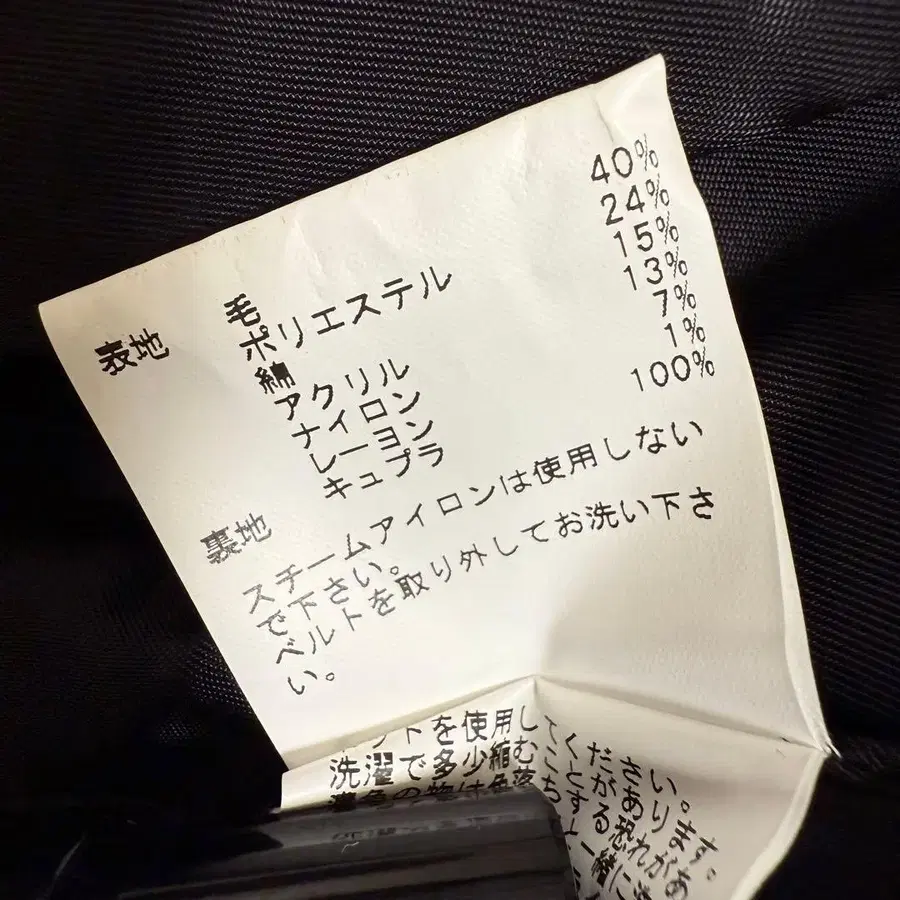 表地 毛 40%
ポリエステル 24%
綿 15%
アクリル 13%
ナイロン 7%
レーヨン 1%
裏地 キュプラ 100%
スチームアイロンは使用しない
で下さい。
ベルトを取り外してお洗い下さ
い。
ットを使用してください。
洗濯で多少縮むことがあります。
濃色の物は色落ちする恐れがあ
一緒に